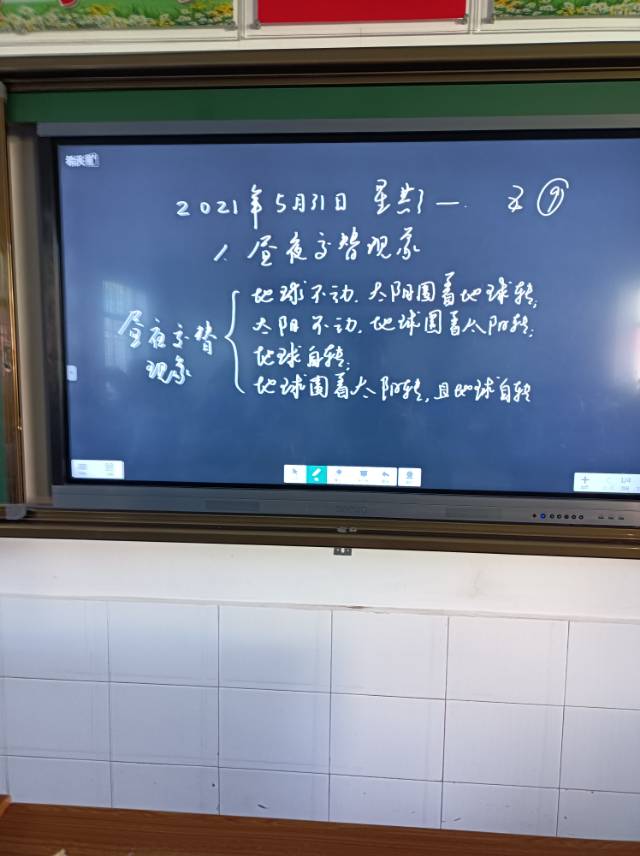 2021年5月31日 星期一.
1. 昼夜交替现象
昼夜交替
现象
地球不动, 太阳围着地球转;
太阳不动, 地球围着太阳转;
地球自转;
地球围着太阳转, 且地球自转
1/4